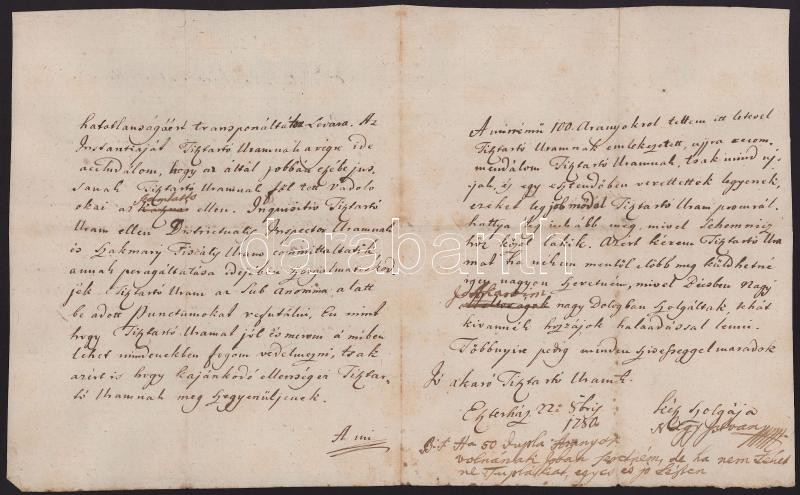 hatatlanságáért transponáltátott Lévára. Az
Instantiáját Tisztartó Uramnak végre ide
accludalom, hogy az által jobban eszébe jus-
sanak Tisztartó Uramnak föl tett vádolo
okai az ellen. Inquisitio Tisztartó
Uram ellen Districtualis Inspector Uramnak
és Szakmáry Fiscalis Uramnak committáltatik,
annak peragáltatása idejében szorgalmatoskod-
jék. Tisztartó Uram az Sub Anonimo alatt
be adott Punctumokat refutálni, En mint
hogy Tisztartó Uramat jól és merem á miben
lehet mindenekben fogom védelmezni, tsak
azért is hogy kajánkodó ellenségei Tisztar-
tó Uramnak meg szegyenüljenek.
A mi
A minémű 100. Aranyokrol tettem itt létével
Tisztartó Uramnak emlékezetet, ujjra recom-
mendálom Tisztartó Uramnak, tsak mind uj-
jak, és egy esztendőben verettettek legyenek,
ezeket leg jobb móddal Tisztartó Uram procurál-
hattya inkább meg, mivel Sehemnicz-
hez közel lakik. Azért kérem Tisztartó Ura-
mat ha nékem mentől előbb meg küldhetné
igen nagyon szeretném, mivel Bécsben Nagy
nagy Dologban szolgáltak, tehát
kivannék hozzájok haláadással lenni.
Többnyire pedig minden szivességgel maradok
Jó akaró Tisztartó Uramk.
Eszterház 22a 8bris
1780.
kész szolgája
Nagy István
P.S. Ha 50 dupla Aranyok
volnának jobban szeretném, de ha nem Lehet
ne Duplákat, egyes is jó Leszen
darabanth